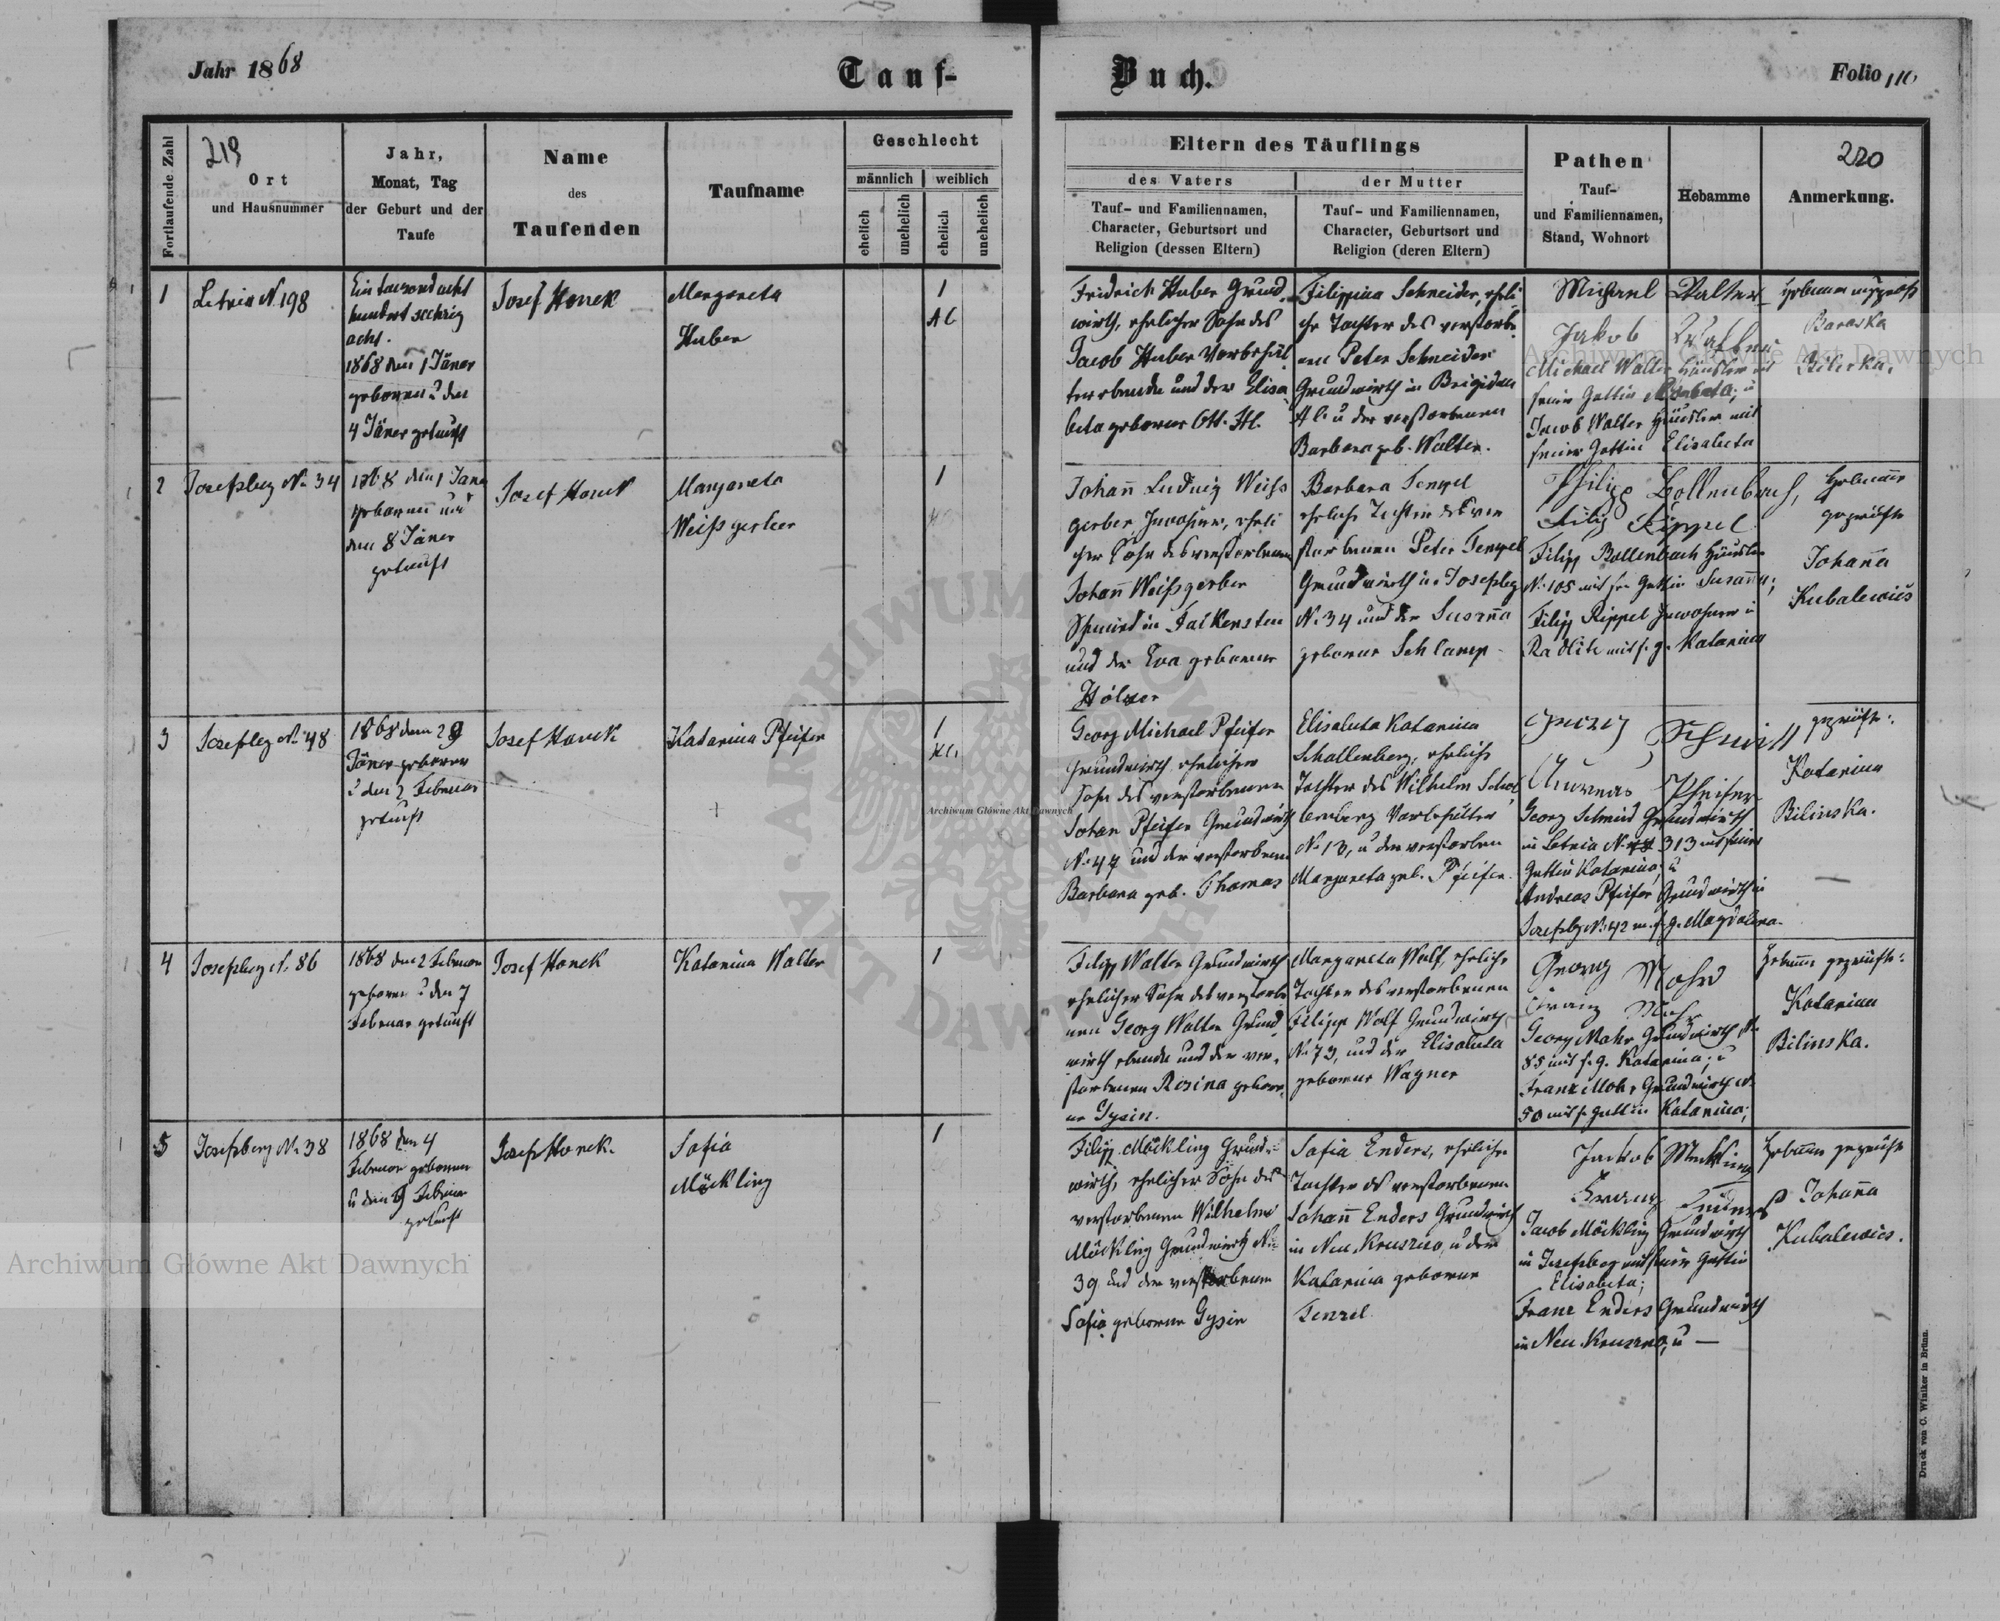 Jahr 1868
Tauf-
Buch.
Folio 110
Fortlaufende Zahl
219
Ort
und Hausnummer
Jahr,
Monat, Tag
der Geburt und der
Taufe
Name
des
Taufenden
Taufname
Geschlecht
männlich
weiblich
ehelich
unehelich
ehelich
unehelich
Eltern des Täuflings
des Vaters
Tauf- und Familiennamen,
Character, Geburtsort und
Religion (dessen Eltern)
der Mutter
Tauf- und Familiennamen,
Character, Geburtsort und
Religion (deren Eltern)
Pathen
Tauf-
und Familiennamen,
Stand, Wohnort
Hebamme
220
Anmerkung.
1
N. 198
Ein tausend acht
hundert sechzig
acht.
1868 den 1 Jäner
geboren u den
4 Jäner getauft
Josef Honek
Margareta
Huber
1
Fridrich Huber Grund
wirth, ehelicher Sohn des
Jacob Huber Vorbehäl
ters und der Elisa
beta geborene Ott. Hl.
Filippina Schneider, eheli
che Tochter des verstorbe
nen Peter Schneider
Grundwirth in Brigidau
u der verstorbenen
Barbara geb. Walter.
Michael Walter
Jakob Walter
Michael Walter Häusler mit
seiner Gattin
Jacob Walter Häusler mit
seiner Gattin Elisabeta
Hebamme
Bilicka.
2
Josefsberg No 34
1868 den 1 Jäner
geboren und
den 8 Jäner
getauft
Josef Honek
Margareta
Weißgerber
1
Johann Ludwig Weiß
gerber Inwohner, eheli
cher Sohn des verstorbenen
Johann Weißgerber
Schmied in Falkenstein
und der Eva geborene
Hölzer
Barbara Tempel
eheliche Tochter des ver
storbenen Peter Tempel
Grundwirth in Josefsberg
N. 34 und der Susanna
geborene Schlamp
Philipp Bollenbach,
Filip Rippel
Filipp Bollenbach Häusler
N. 105 mit sr Gattin Susanna;
Filipp Rippel Inwohner
mit s. g. Katarina
Hebamme
geprüfte
Johanna
Kubalewics
3
Josefsbg No 48
1868 den 29
Jäner geboren
u den 2 Februar
getauft
Josef Honek
Katarina Pfeifer
1
Georg Michael Pfeifer
Grundwirth ehelicher
Sohn des verstorbenen
Johan Pfeifer Grundwirth
No 47 und der verstorbenen
Barbara geb. Thomas
Elisabeta Katarina
Schallenberg, eheliche
Tochter des Wilhelm Schal
lenberg Vorbehälter
No 13, u der verstorben
Margareta geb. Pfeifer.
Schmitt
Pfeifer
Georg Schmied Grundwirth
313 mit seiner
Gattin Katarina, u
Andreas Pfeifer Grundwirth in
Josefsbg N. 42 m. s. g. Magdalena.
geprüfte:
Katarina
Bilinska.
4
Josefsberg N. 86
1868 den 2 Februar
geboren u den 7
Februar getauft
Josef Honek
Katarina Walter
1
Filipp Walter Grundwirth
ehelicher Sohn des verstorbe
nen Georg Walter Grund
wirth und der ver
storbenen Rosina gebore
ne Gysin.
Margareta Wolf, eheliche
Tochter des verstorbenen
Filipp Wolf Grundwirth
No 73, und der Elisabeta
geborene Wagner
Georg Mohr
Franz Mohr
Georg Mohr Grundwirth N.
85 mit s. g. Katarina; u
Franz Mohr Grundwirth N.
50 mit s. Gattin Katarina;
Hebamme geprüfte:
Katarina
Bilinska.
5
Josefsberg N. 38
1868 den 4
Februar geboren
u den 9 Februar
getauft
Josef Honek.
Sofia
Möckling
1
Filipp Möckling Grund-
wirth, ehelicher Sohn des
verstorbenen Wilhelm
Möckling Grundwirth No
39 und der verstorbenen
Sofia geborene Gysin
Sofia Enders, eheliche
Tochter des verstorbenen
Johann Enders Grundwirth
in Neu Kruszno, u der
Katarina geborene
Tenzel
Jackob Meckling
Franz Enders
Jacob Möckling Grundwirth
in Josefsberg mit seiner Gattin
Elisabeta;
Franz Enders Grundwirth
in Neu Kruszno, u —
Hebamme geprüfte
Johanna
Kubalewics.
Druck von C. Winiker in Brünn.
Archiwum Główne Akt Dawnych
Archiwum Główne Akt Dawnych
Archiwum Główne Akt Dawnych